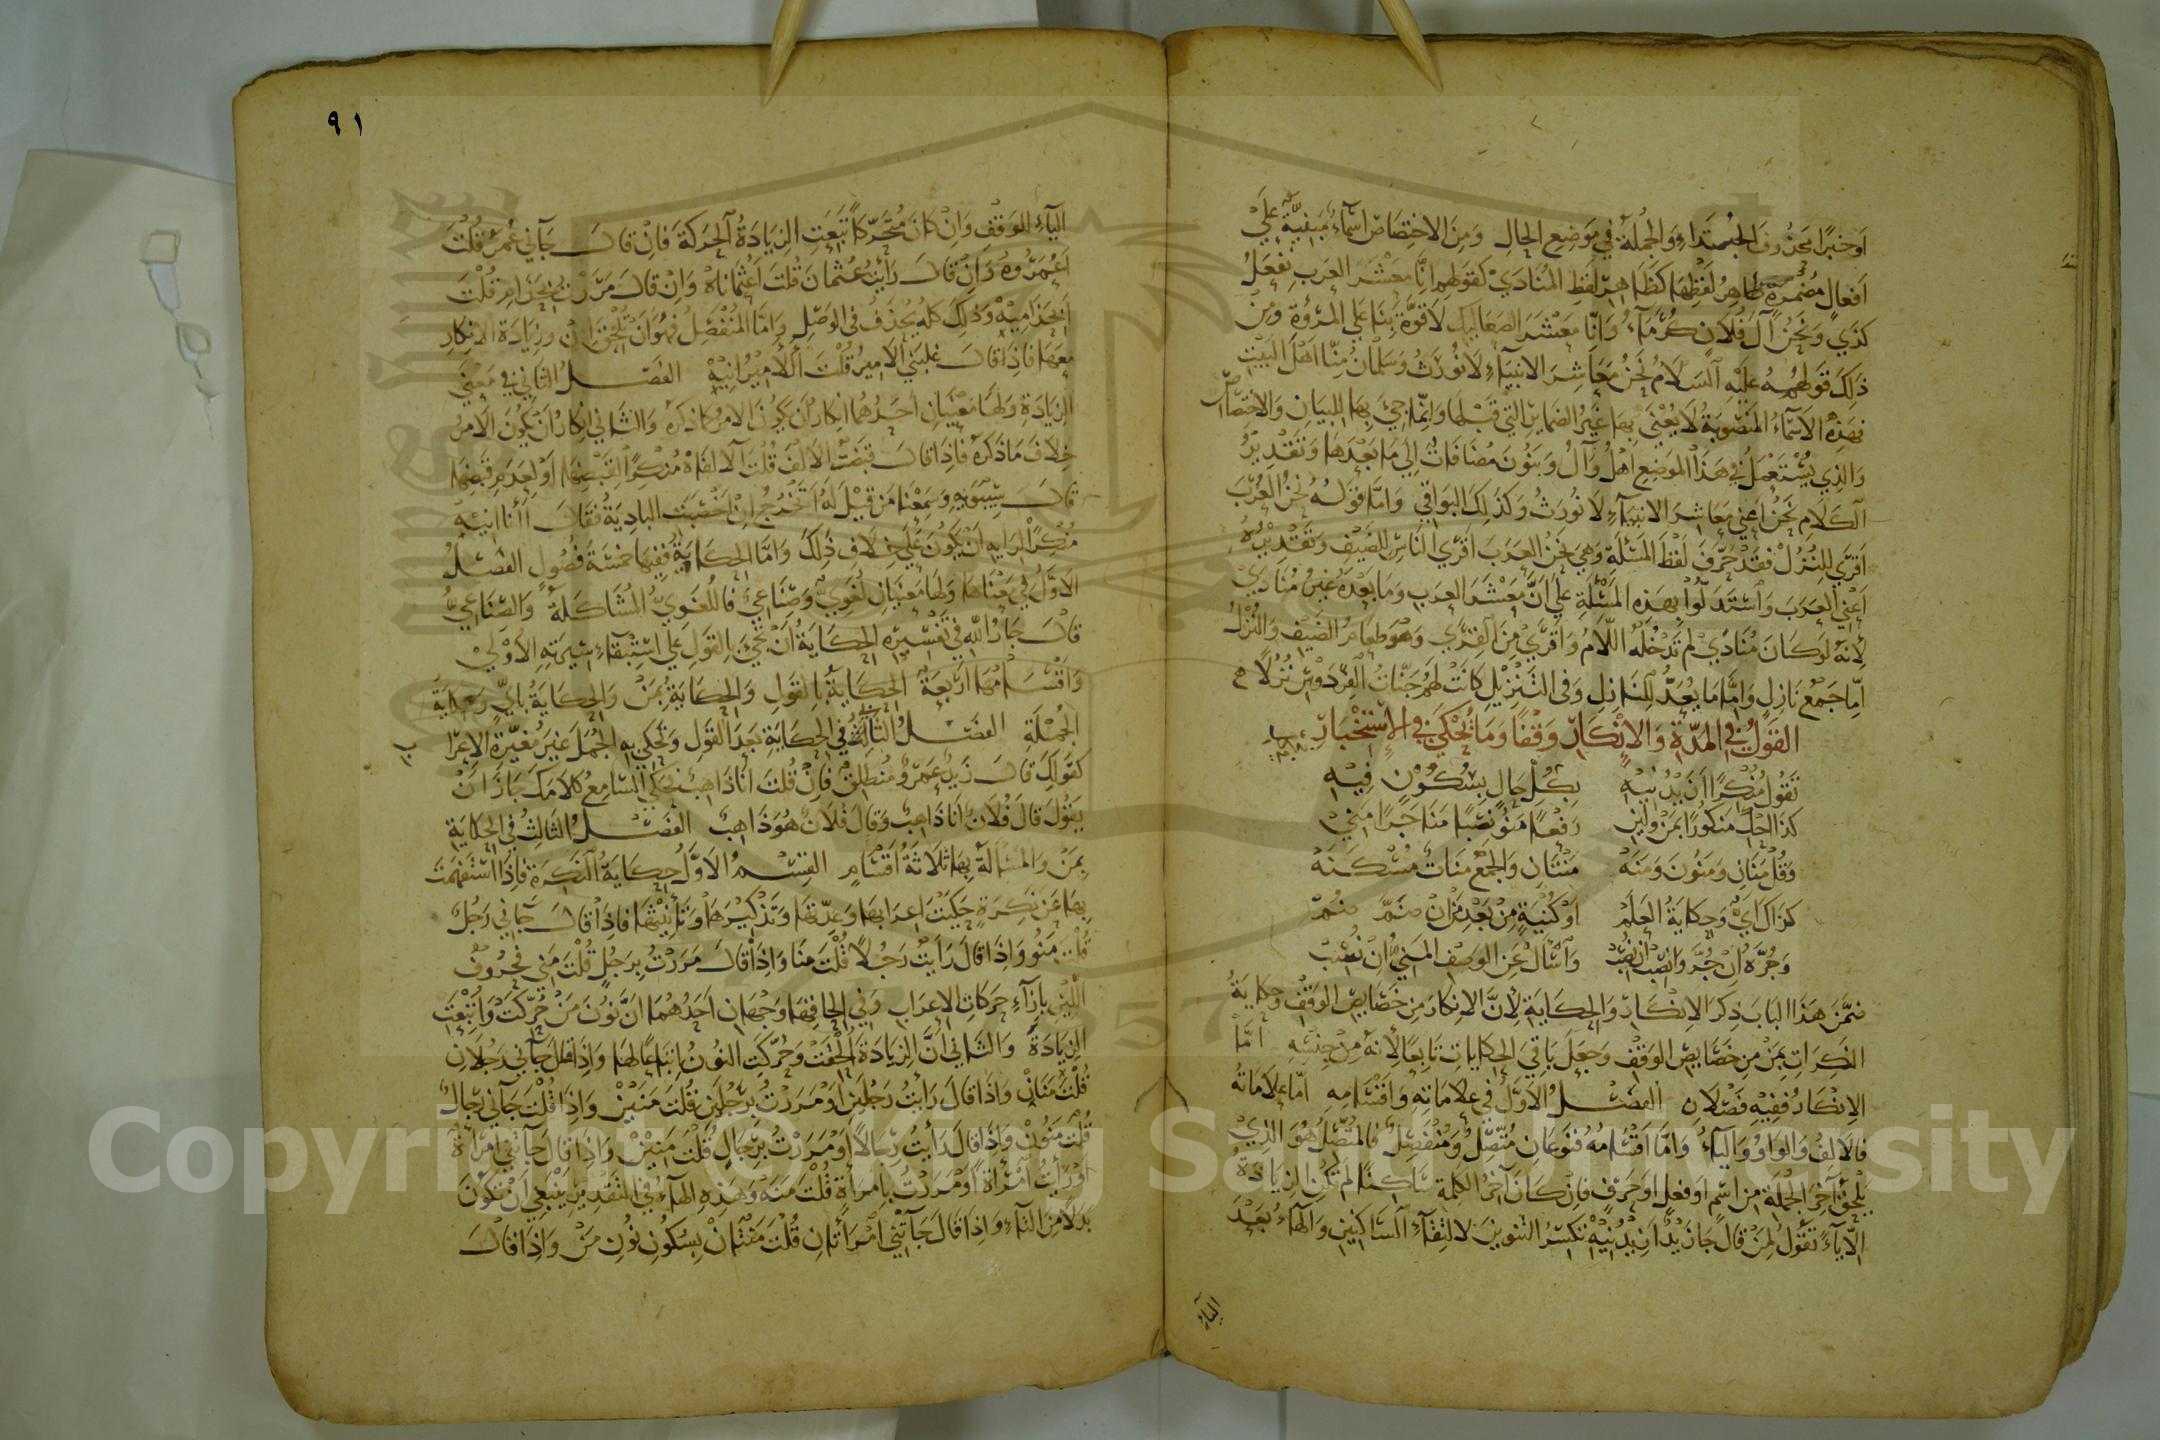 اَوخبرًا محذُوفَ المبتداءِ والجُملَةُ في مَوضِعِ الحَالِ ومِنَ الاختِصَاصِ اسمَاءٌ مَبنِيَّةٌ عَلي
اَفعالٍ مُضمَرَةٍ ظَاهِرُ لَفظِهَا كَظَاهِرِ لَفظِ المُنَادَي كقولهم اِنَّا مَعْشَرَ العَربِ نفعَلُ
كذي وَنَحْنُ آلَ فُلَانٍ كُرَمَآءُ وَانَّا مَعْشَرَ الصَعَالِيكِ لَا قوَّةَ بِنَا علي المُرُوَّةِ ومِن
ذلِكَ قَولُهُ عَلَيْهِ السَلَامُ نَحْنُ مَعَاشِرَ الانبيَآءِ لَا نُورَثُ وَسَلْمَانُ مِنَّا اَهْلَ البَيْتِ
فهَذِهِ الاَسْمَآءُ المَنْصُوبَةُ لَا يُعْنَي بِهَا غَيْرُ الضمايرِ التي قَبْلَهَا واِنَّمَا جِيَ بِهَا للبَيَانِ والاختِصَاصِ
وَالذِي يُسْتَعْمَلُ في هَذَا الموضعِ اَهْلُ وآلُ وَبَنُونَ مُضَافَاتٌ اِلَي مَا بَعْدَهَا وَتَقْدِيرُ
الكَلَامِ نَحْنُ اعني مَعَاشِرَ الانبيَآءِ لَا نُورَثُ وكَذلِكَ البَوَاقي وَامَّا قَولُهُ نَحْنُ العُرْبَ
اَقرَي للنُزُلِ فقَدْ حُرِّفَ لَفْظُ المَسْئلَةِ وهي نَحْنُ العَرَبَ اَقرَي النَّاسِ للضَيْفِ وتَقْدِيرُهُ
اَعْنِي العَرَبَ وَاسْتَدَلّوا بِهَذِهِ المَسْئلَةِ علي انَّ مَعْشَرَ العربِ ومَا بَعْدَهُ غَيرُ مُنَادَيً
لِاَنَّهُ لَو كَانَ مُنَادَيً لم تَدْخُلْهُ اللَّامُ وَاَقرَي مِنَ القِرَي وَهُوَ طعَامُ الضَيْفِ وَالنُزُلُ
اِمّا جَمْعُ نَازِلٍ وَاِمَّا مَا يُعَدُّ للنَازِلِ وَفِي التَنْزِيلِ كَانَتْ لَهُمْ جَنَّاتُ الفِرْدَوسِ نُزُلًا
القَولُ في المَدَّةِ وَالاِنْكَارِ وَقْفًا وَمَا تُحْكَي في الاِسْتخْبَارِ
تَقُولُ مُنْكِرًا اَزَيْدُنِيهْ بِكُلِّ حَالٍ بِسُكُونٍ فِيهِ
كَذَا احْكِ مَنكُورًا بمَنْ ولِينِ رَفْعًا مَنُو نَصْبًا مَنَا جَرًّا مَنِي
وقُلْ مَنَانِ ومَنُونَ وَمَنَهْ مَنْتَانِ والجَمْعُ مَنَاتْ مُسْكَنَهْ
كذَاكَ ايٌّ وَحكايَةُ العَلَمْ اَو كُنْيَةٍ مِنْ بَعْدِ مَنْ اِنْ ضُمَّ ضُمّْ
وَجُرَّهُ اِنْ جُرَّ وانصِبْ اِنْ نُصِبْ وَاسْاَلْ عَنِ الوَصْفِ المَنِيُّ اِنْ نُسِبْ
ضَمَّنَ هَذَا البَابَ ذِكْرَ الاِنْكَارِ وَالحِكَايَةِ لِاَنَّ الاِنْكَارَ مِن خَصَايصِ الوَقْفِ وحِكايَةُ
النَكِرَاتِ بِمَنْ مِن خَصَايصِ الوَقْفِ وَجَعَلَ بَاقيَ الحِكايَاتِ تَابعًا لِاَنَّهُ مِنْ جِنْسِهِ امَّا
الاِنكَارُ فَفِيهِ فَصْلَانِ الفَصْلُ الاَوَّلُ في عَلامَاتِهِ وَاقْسَامِهِ امَّا عَلامَاتُهُ
فالاَلفُ وَالوَاوُ وَاليَاءُ وَامَّا اَقْسَامُهُ فَنَوعَانِ مُتَّصِلٌ وَمُنْفَصِلٌ فالمُتَّصِلُ هُوَ الذِي
يَلْحَقُ آخِرَ الجُمْلَةِ مِنِ اسْمٍ اَو فعلٍ اَو حَرْفٍ فَاِنْ كَانَ آخِرُ الكلمَةِ سَاكِنًا لَمْ تَكُنِ الزِيَادَةُ
الّا يَاءً تَقُولُ لِمَنْ قالَ جَا زَيْدٌ اَزَيْدُنِيهْ تَكْسِرُ التنوينَ لالتِقَآءِ السَاكِنَينِ والهَاءُ بَعْدَ
اليَاءِ
٩١
اليَآءِ للوَقْفِ وَاِنْ كَانَ مُتَحَرِّكًا تَبِعَتِ الزيَادَةُ الحَرَكَةَ فَاِنْ قالَ جَآني عُمَرُ قُلْتَ
اَعُمَرُوهْ وَاِنْ قالَ رَاَيْتُ عُثْمَانَ قُلْتَ اَعُثْمَانَاهْ وَاِنْ قالَ مَرَرْتُ بِحَذَامِ قُلْتَ
اَبِحَذَامِيهْ وَذلِكَ كُلُّهُ يُحْذَفُ في الوَصْلِ وَامَّا المُنْفَصِلُ فهُوَ اَنْ تُلْحَقَ اِنْ وزِيَادَةُ الاِنكَارِ
مَعَهَا فَاِذَا قَالَ غَلَبَنِي الاَمِيرُ قُلْتَ اَلْاَمِيرُ اِنِيهْ الفَصْلُ الثاني في مَعنَي
الزيَادَةِ ولَهَا مَعْنَيَانِ اَحَدُهُمَا اِنكَارُ اَن يَكُونَ الاَمرُ كمَا ذَكَرَهُ وَالثاني اِنكَارُ اَنْ يَكُونَ الاَمرُ
خِلافَ مَا ذَكَرَهُ فَاِذَا قالَ قَبَضْتُ الاَلْفَ قُلْتَ آلاَلْفَاهْ مُنْكِرًا لِقَبْضِهَا اَوْ لِعَدَمِ قَبْضِهَا
قالَ سِيْبَويهِ وسَمِعْنَا مَن قِيْلَ لَهُ اَتَخْرُجُ اِنْ اَخْصَبَتِ البَادِيَةُ فقَالَ اَاَنَا اِنِيهْ
مُنْكِرًا لِرَايِهِ اَنْ يَكُونَ عَلَي خِلَافِ ذلِكَ وَامَّا الحكَايَةُ ففِيهَا خمْسَةُ فُصُولٍ الفَصْلُ
الاَوَّلُ في مَعْنَاهَا ولَهَا مَعْنَيَانِ لُغَوِيٌّ وَصِنَاعِيٌّ فاللُّغَوِيُّ المُشَاكَلَةُ وَالصّنَاعِيُّ
قالَ جَارُ اللّهِ في تَفْسِيرِهِ الحِكَايَةُ اَنْ تَجِيَ بِالقَولِ علي اسْتِبْقَآءِ سِيرَتِهِ الاُوْلي
وَاَقْسَامُهَا اَرْبَعَةٌ الحكَايَةُ بِالقَولِ وَالحِكَايَةُ بمَنْ وَالحِكَايَةُ باَيٍّ وَحِكَايَةُ
الجُمْلَةِ الفَصْلُ الثَّاني في الحكَايَةِ بَعدَ القَولِ وتُحكَي بِهِ الجُمَلُ غَيْرَ مُغَيَّرَةِ الاِعرَابِ
كقَولِكَ قالَ زَيْدٌ عَمرٌو مُنْطَلِقٌ فَاِنْ قُلْتَ اَنَا ذَاهِبٌ فحَكَي السَّامِعُ كلَامَكَ جَازَ اَنْ
يَقُولَ قَالَ فُلَانٌ اَنَا ذَاهِبٌ وَقالَ فُلَانٌ هُوَ ذَاهِبٌ الفَصْلُ الثالِثُ في الحِكَايَةِ
بِمَنْ وَالمَسْاَلَةُ بِهَا ثَلَاثَةُ اَقْسَامٍ القِسْمُ الاَوَّلُ حكَايَةُ النَكِرَةِ فَاِذَا اسْتَفْهَمْتَ
بِهَا عَن نَكِرَةٍ حَكَيْتَ اِعرَابَهَا وَعِدَّتَهَا وَتَذْكِيْرَهَا وَتَأنِيثَهَا فاِذَا قالَ جَاني رَجُلٌ
قُلْتَ مَنُو وَاِذَا قالَ رَاَيْتُ رَجُلًا قُلْتَ مَنَا وَاِذَا قالَ مَرَرْتُ بِرَجُلٍ قُلْتَ مَنِي فحُرُوفُ
اللِّيْنِ بِاِزَآءِ حَرَكَاتِ الاِعرَابِ وَفي اِلحَاقِهَا وَجْهَانِ اَحَدُهُمَا اَنَّ نُونَ مَنْ حُرِّكَتْ وَاُتْبِعَتِ
الزِيَادَةَ وَالثَاني اَنَّ الزيَادَةَ اُلْحِقَتْ وَحُرِّكَتِ النُونُ اِتبَاعًا لهَا وَاِذَا قالَ جَآني رَجُلَانِ
قُلْتَ مَنَانْ وَاِذَا قالَ رَاَيْتُ رَجُلَيْنِ اَوْ مَرَرْتُ بِرَجُلَيْنِ قُلْتَ مَنَيْنْ وَاِذَا قُلْتَ جَآني رِجَالٌ
قُلْتَ مَنُونْ وَاِذَا قالَ رَاَيْتُ رِجَالًا اَوْ مَرَرْتُ بِرِجَالٍ قُلْتَ مَنِيْنْ وَاِذَا قالَ جَآتْنِي امْرَاَةٌ
اَوْ رَاَيْتُ امْرَاَةً اَوْ مَرَرْتُ بِامرَاَةٍ قُلْتَ مَنَهْ وَهَذِهِ الهَآءُ في التَقْدِيرِ يَنْبَغِي اَنْ تَكُوْنَ
بَدَلًا مِنَ التَآءِ وَاِذَا قالَ جَآتْنِي امْرَاَتَانِ قُلْتَ مَنْتَانْ بِسُكُونِ نُونِ مَنْ وَاِذَا قَالَ
Copyright © King Saud University
1957